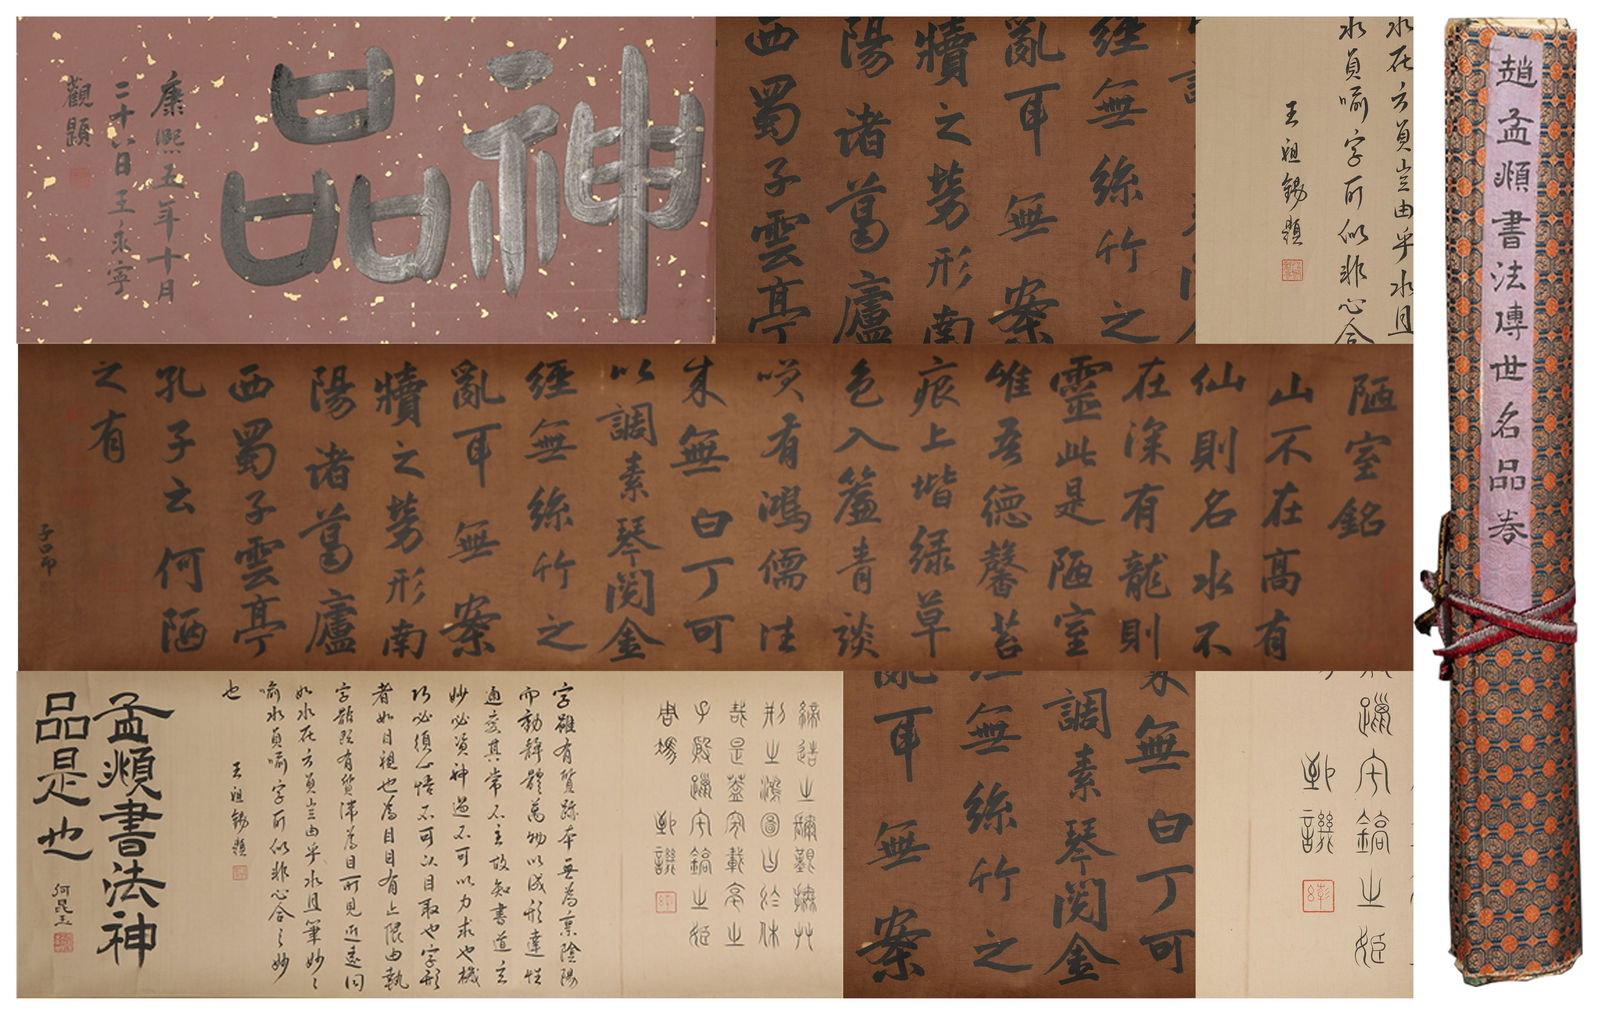 神品
康熙五年十月
二十六日王永寧
觀題
水在方員豈由乎水且
水員喻字所似非心合
王祖錫題
經無絲竹之
亂耳無案
牘之勞形南
陽諸葛廬
西蜀子雲亭
陋室銘
山不在高有
仙則名水不
在深有龍則
靈此是陋室
惟吾德馨苔
痕上堦緑草
色入簾青談
笑有鴻儒往
来無白丁可
以調素琴閱金
經無絲竹之
亂耳無案
牘之勞形南
陽諸葛廬
西蜀子雲亭
孔子云何陋
之有
子昂
来無白丁可
調素琴閱金
無絲竹之
亂耳無案
字雖有質跡本無為稟陰陽
而動靜體萬物以成形達性
通變其常不主故知書道玄
妙必資神遇不可以力求也機
巧必須心悟不可以目取也字形
者如目視也為目目有止限由執
字體既有質滯為目所見近遠同
如水在方員豈由乎水且筆妙
喻水員喻字所似非心合之妙
也
王祖錫題
孟頫書法神
品是也
何昆玉
趙孟頫書法傳世名品卷